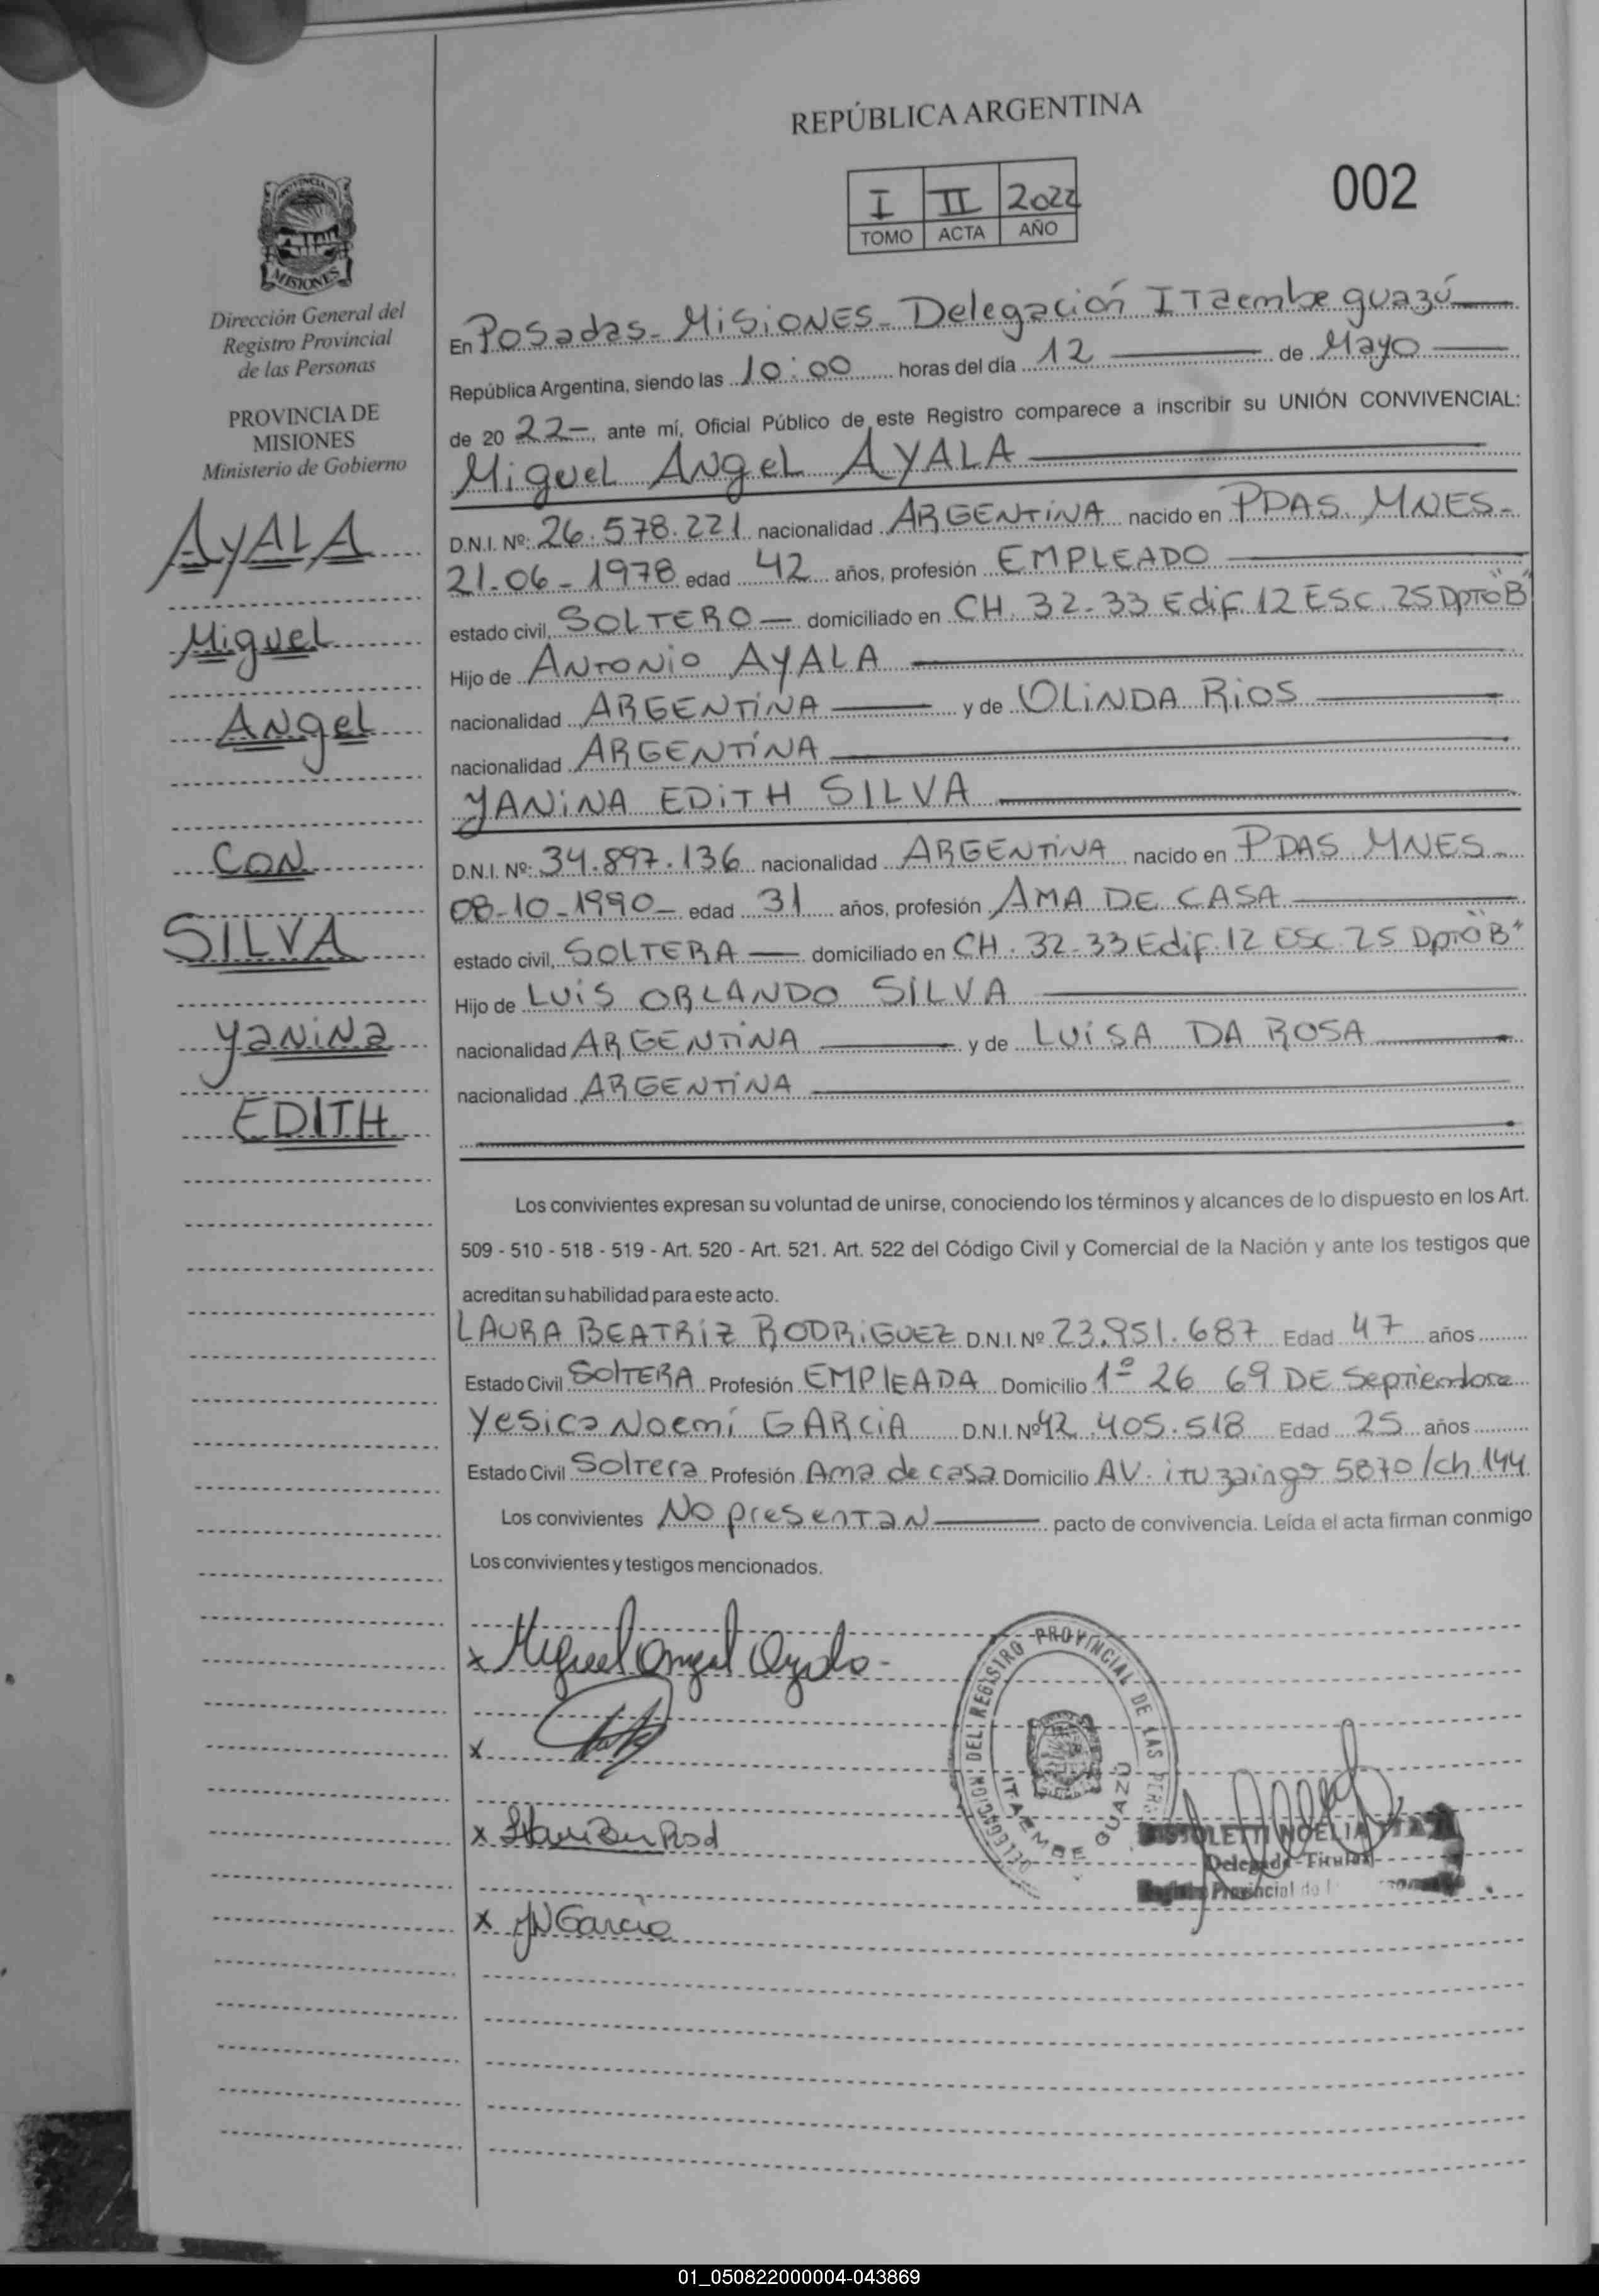 REPÚBLICA ARGENTINA
I II 2022
TOMO ACTA AÑO
002
PROVINCIA DE
MISIONES
Dirección General del
Registro Provincial
de las Personas
PROVINCIA DE
MISIONES
Ministerio de Gobierno
AyALA
Miguel
ANgel
CON
SILVA
yaNiNa
EDITH
En Posadas - MiSiONES - Delegación ITaembe guazú
República Argentina, siendo las 10:00 horas del día 12 de Mayo
de 20 22-, ante mí, Oficial Público de este Registro comparece a inscribir su UNIÓN CONVIVENCIAL:
Miguel ANgel AYALA
D.N.I. Nº: 26.578.221 nacionalidad ARGENTINA nacido en PDAS. MNES-
21-06-1978 edad 42 años, profesión EMPLEADO
estado civil, SOLTERO domiciliado en CH. 32-33 Edif. 12 ESC. 25 DpTO "B"
Hijo de ANTONIO AYALA
nacionalidad ARGENTINA y de OLINDA RIOS
nacionalidad ARGENTINA
YANINA EDITH SILVA
D.N.I. Nº: 34.897.136 nacionalidad ARGENTINA nacido en PDAS MNES-
08-10-1990- edad 31 años, profesión AMA DE CASA
estado civil, SOLTERA domiciliado en CH. 32-33 Edif. 12 ESC. 25 DpTO "B"
Hijo de LUIS ORLANDO SILVA
nacionalidad ARGENTINA y de LUISA DA ROSA
nacionalidad ARGENTINA
Los convivientes expresan su voluntad de unirse, conociendo los términos y alcances de lo dispuesto en los Art.
509 - 510 - 518 - 519 - Art. 520 - Art. 521. Art. 522 del Código Civil y Comercial de la Nación y ante los testigos que
acreditan su habilidad para este acto.
LAURA BEATRIZ RODRIGUEZ D.N.I. Nº 23.951.687 Edad 47 años
Estado Civil SOLTERA Profesión EMPLEADA Domicilio 1º 26 69 DE Septiembre
Yesica Noemí GARCIA D.N.I. Nº 42.405.518 Edad 25 años
Estado Civil Soltera Profesión Ama de casa Domicilio AV. ituzaingo 5870/ch 144
Los convivientes No presentan pacto de convivencia. Leída el acta firman conmigo
Los convivientes y testigos mencionados.
x Miguel Angel Ayala-
x
x
x YN Garcia
DELEGACION DEL REGISTRO PROVINCIAL DE LAS
ITAEMBE GUAZÚ
NOELIA
Delegada Titular
Provincial de
01_050822000004-043869